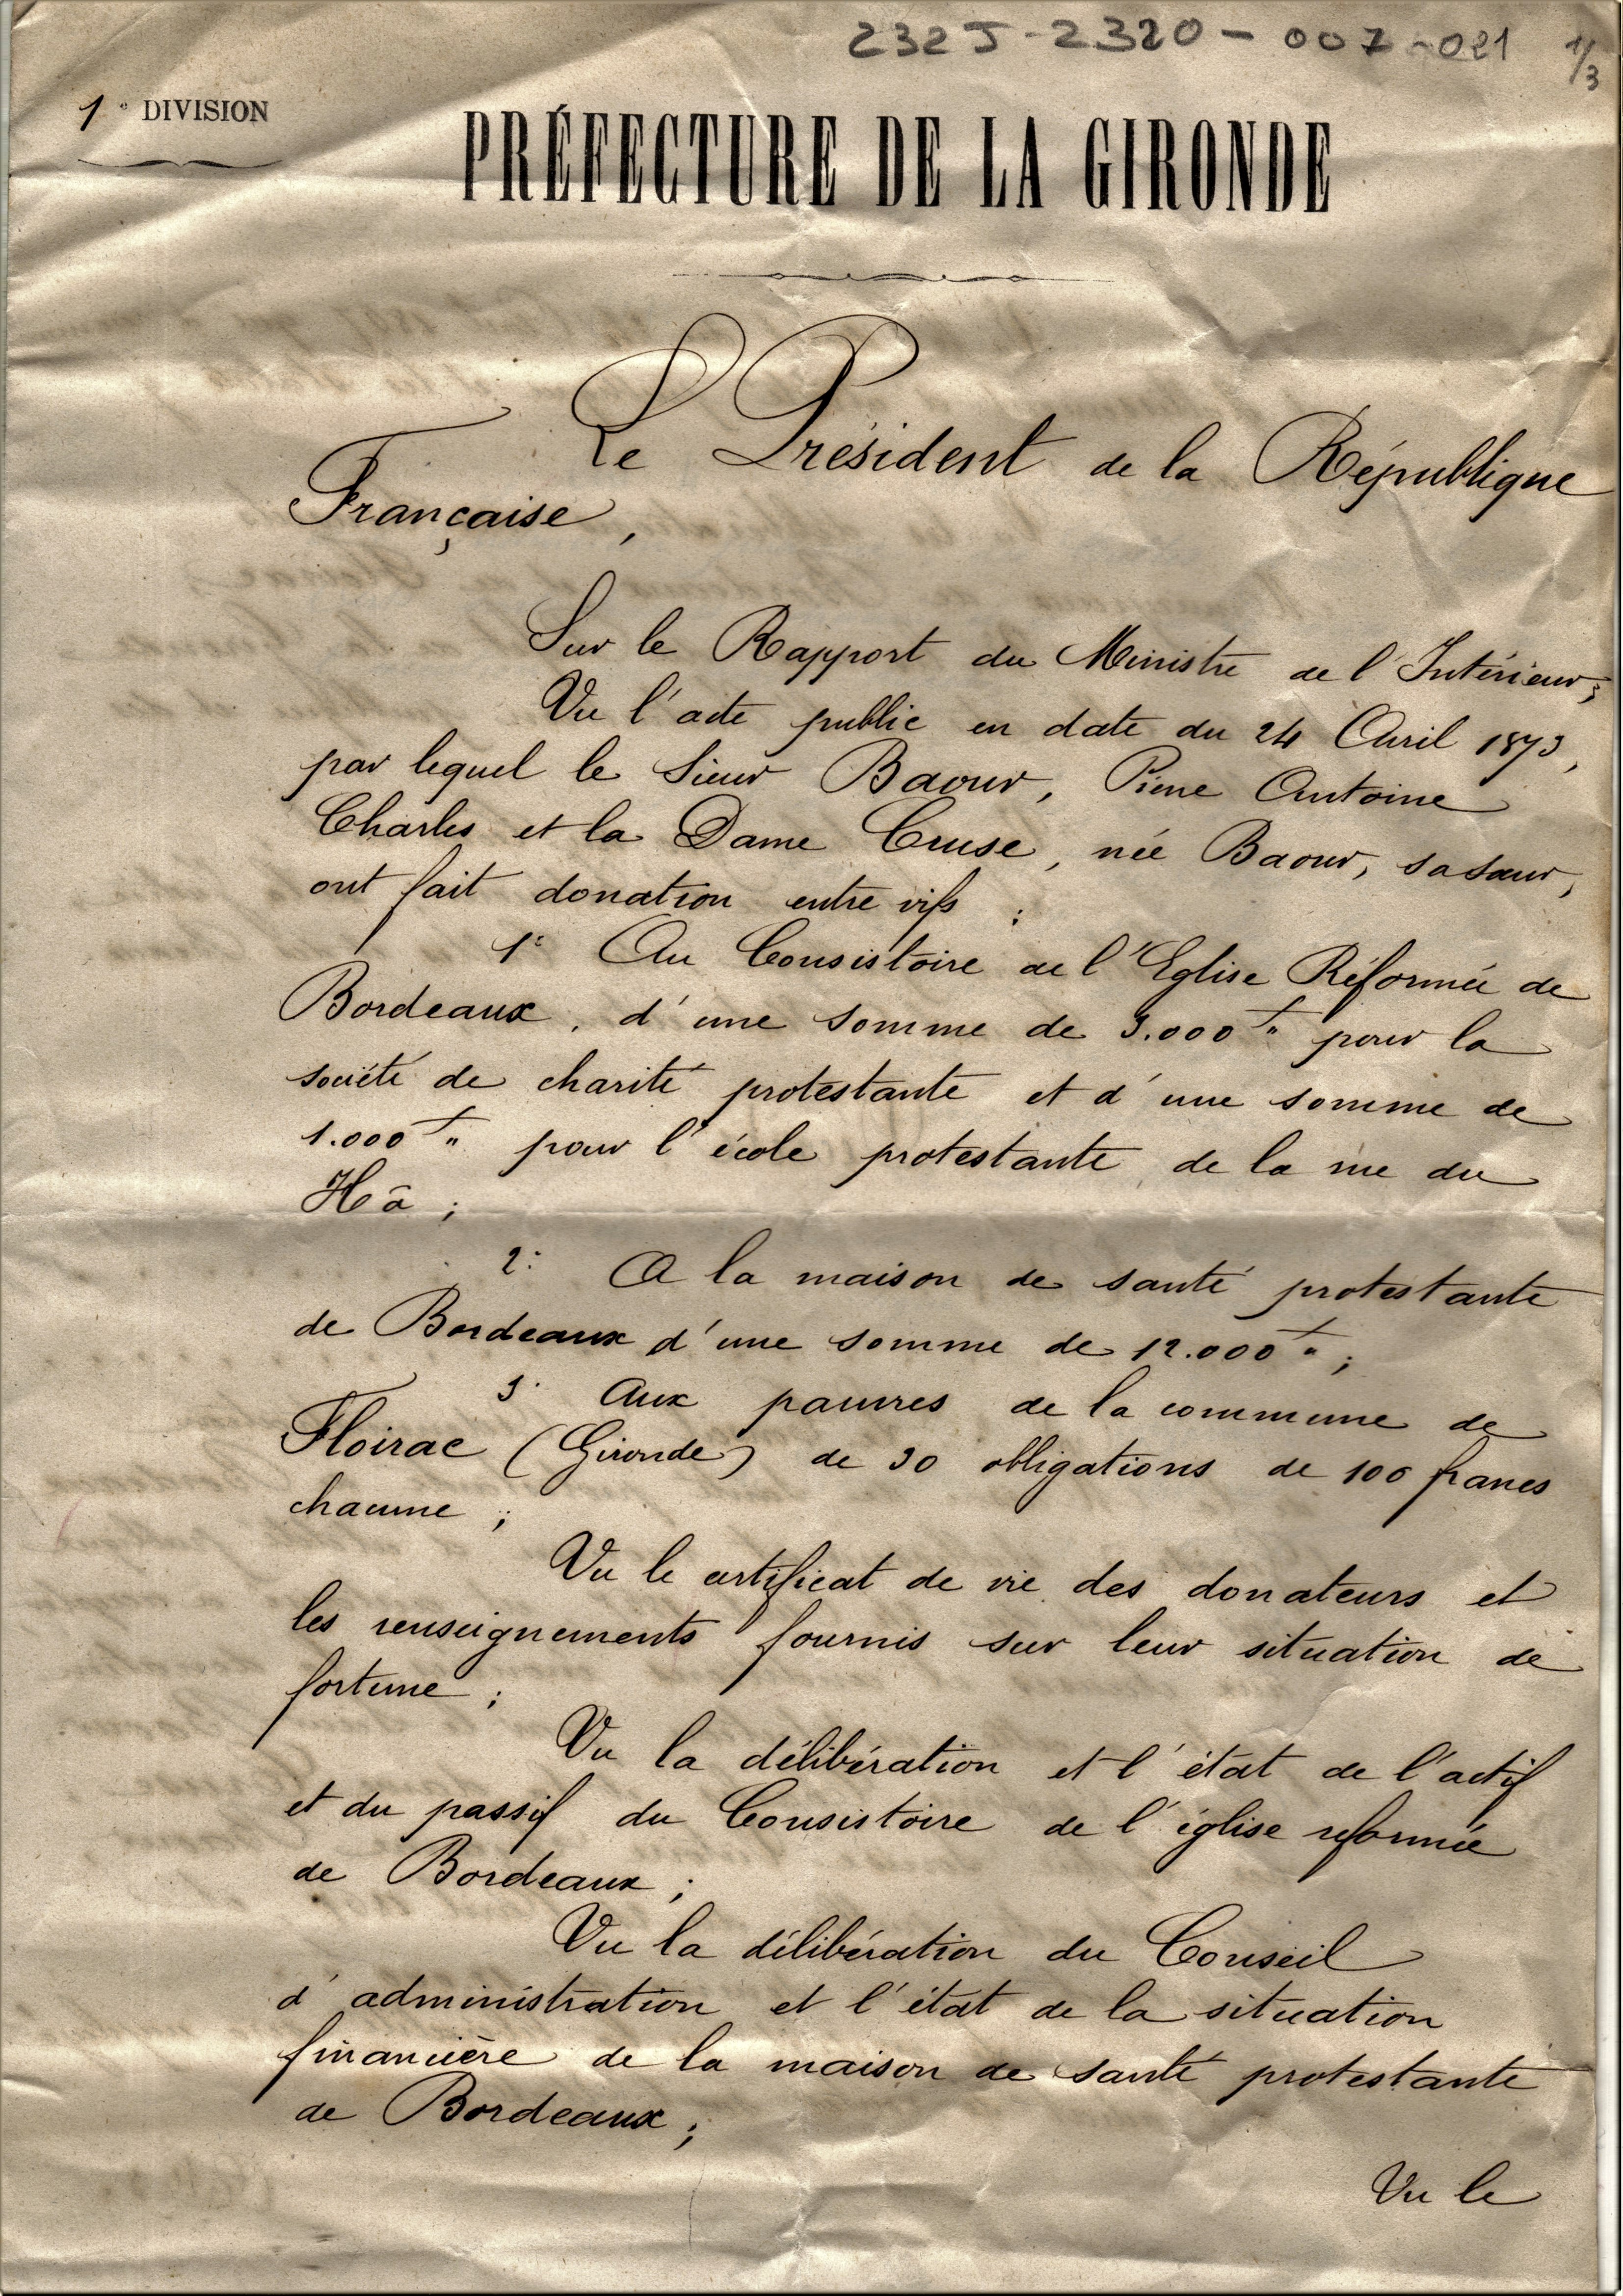 232J-2320-007-021 1/3
1e DIVISION
PRÉFECTURE DE LA GIRONDE
Le Président de la République
Française,
Sur le Rapport du Ministre de l'Intérieur;
Vu l'acte public en date du 24 Avril 1873,
par lequel le Sieur Baour, Pierre Antoine
Charles et la Dame Cruse, née Baour, sa sœur,
ont fait donation entre vifs :
1° Au Consistoire de l'Eglise Réformée de
Bordeaux, d'une somme de 3.000f" pour la
société de charité protestante et d'une somme de
1.000f" pour l'école protestante de la rue du
Hâ ;
2° A la maison de santé protestante
de Bordeaux d'une somme de 12.000f" ;
3° Aux pauvres de la commune de
Floirac (Gironde) de 30 obligations de 100 francs
chacune ;
Vu le certificat de vie des donateurs et
les renseignements fournis sur leur situation de
fortune ;
Vu la délibération et l'état de l'actif
et du passif du Consistoire de l'église reformée
de Bordeaux ;
Vu la délibération du Conseil
d'administration et l'état de la situation
financière de la maison de santé protestante
de Bordeaux ;
Vu le